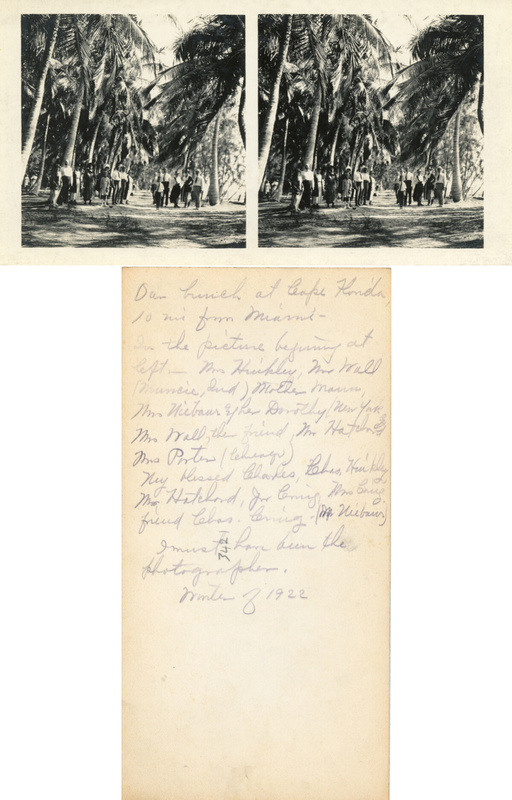 Our bunch at Cape Florida,
10 mi from Miami -
In the picture begining at
left - Mrs Hinkley, Mrs Wall
(Muncie, Ind) Mother Mann,
Mrs Niebaur & her Dorothy (New York,
Mr Wall, friend, Mr Hatchard
Mrs Porter (Chicago)
My blessed Charles, Chas. Hinkley
Mrs Hatchard, Jr Craig Mrs Craig,
friend Chas. Craig - (Mr Niebaur)
I must have been the
photographer.
Winter of 1922
3421